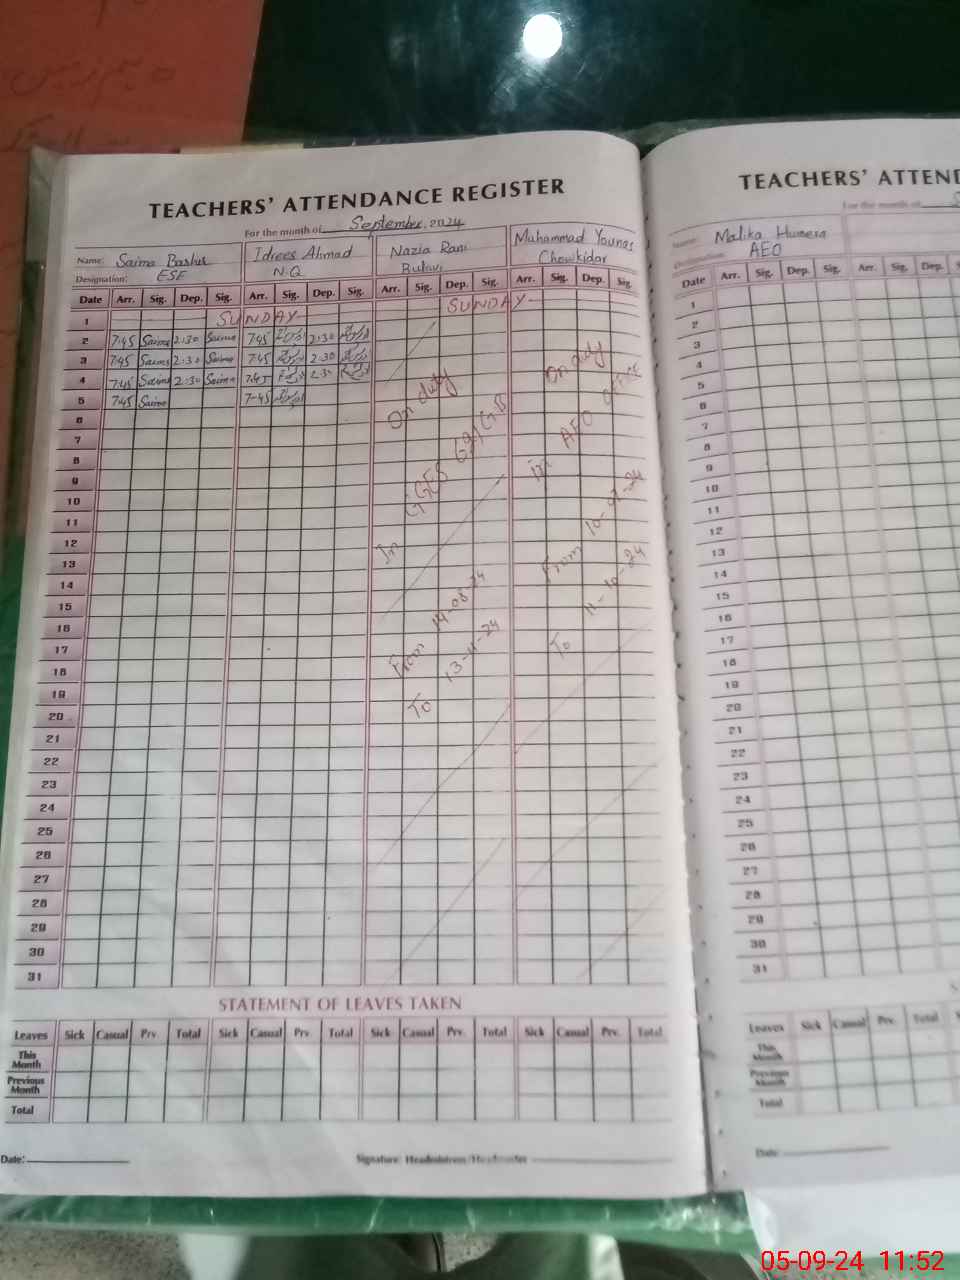 TEACHERS' ATTENDANCE REGISTER
For the month of September, 2024
Name: Saima Bashir Idrees Ahmad Nazia Rani Muhammad Younas
Designation: ESE N.Q Chowkidar
Date Arr. Sig. Dep. Sig. Arr. Sig. Dep. Sig. Arr. Sig. Dep. Sig. Arr. Sig. Dep. Sig.
1 SUNDAY SUNDAY
2 7:45 Saima 2:30 Saima 7:45 2:30
3 7:45 Saima 2:30 Saima 7:45 2:30
4 7:45 Saima 2:30 Saima 7:45 2:30
5 7:45 Saima 7-45
6
7
8
9
10
11
12
13
14
15
16
17
18
19
20
21
22
23
24
25
26
27
28
29
30
31
On duty
In GGES
From 14-08-24
To 13-11-24
On duty
in AEO office
From 10-07-24
To 11-10-24
STATEMENT OF LEAVES TAKEN
Leaves Sick Casual Prv. Total Sick Casual Prv. Total Sick Casual Prv. Total Sick Casual Prv. Total
This Month
Previous Month
Total
Date: Signature: Headmistress/Headmaster
TEACHERS' ATTEND
For the month of S
Name: Malika Humera
Designation: AEO
Date Arr. Sig. Dep. Sig. Arr. Sig. Dep. S
1
2
3
4
5
6
7
8
9
10
11
12
13
14
15
16
17
18
19
20
21
22
23
24
25
26
27
28
29
30
31
S
Leaves Sick Casual Prv. Total Sick Casual Prv.
This Month
Previous Month
Total
Date:
05-09-24 11:52